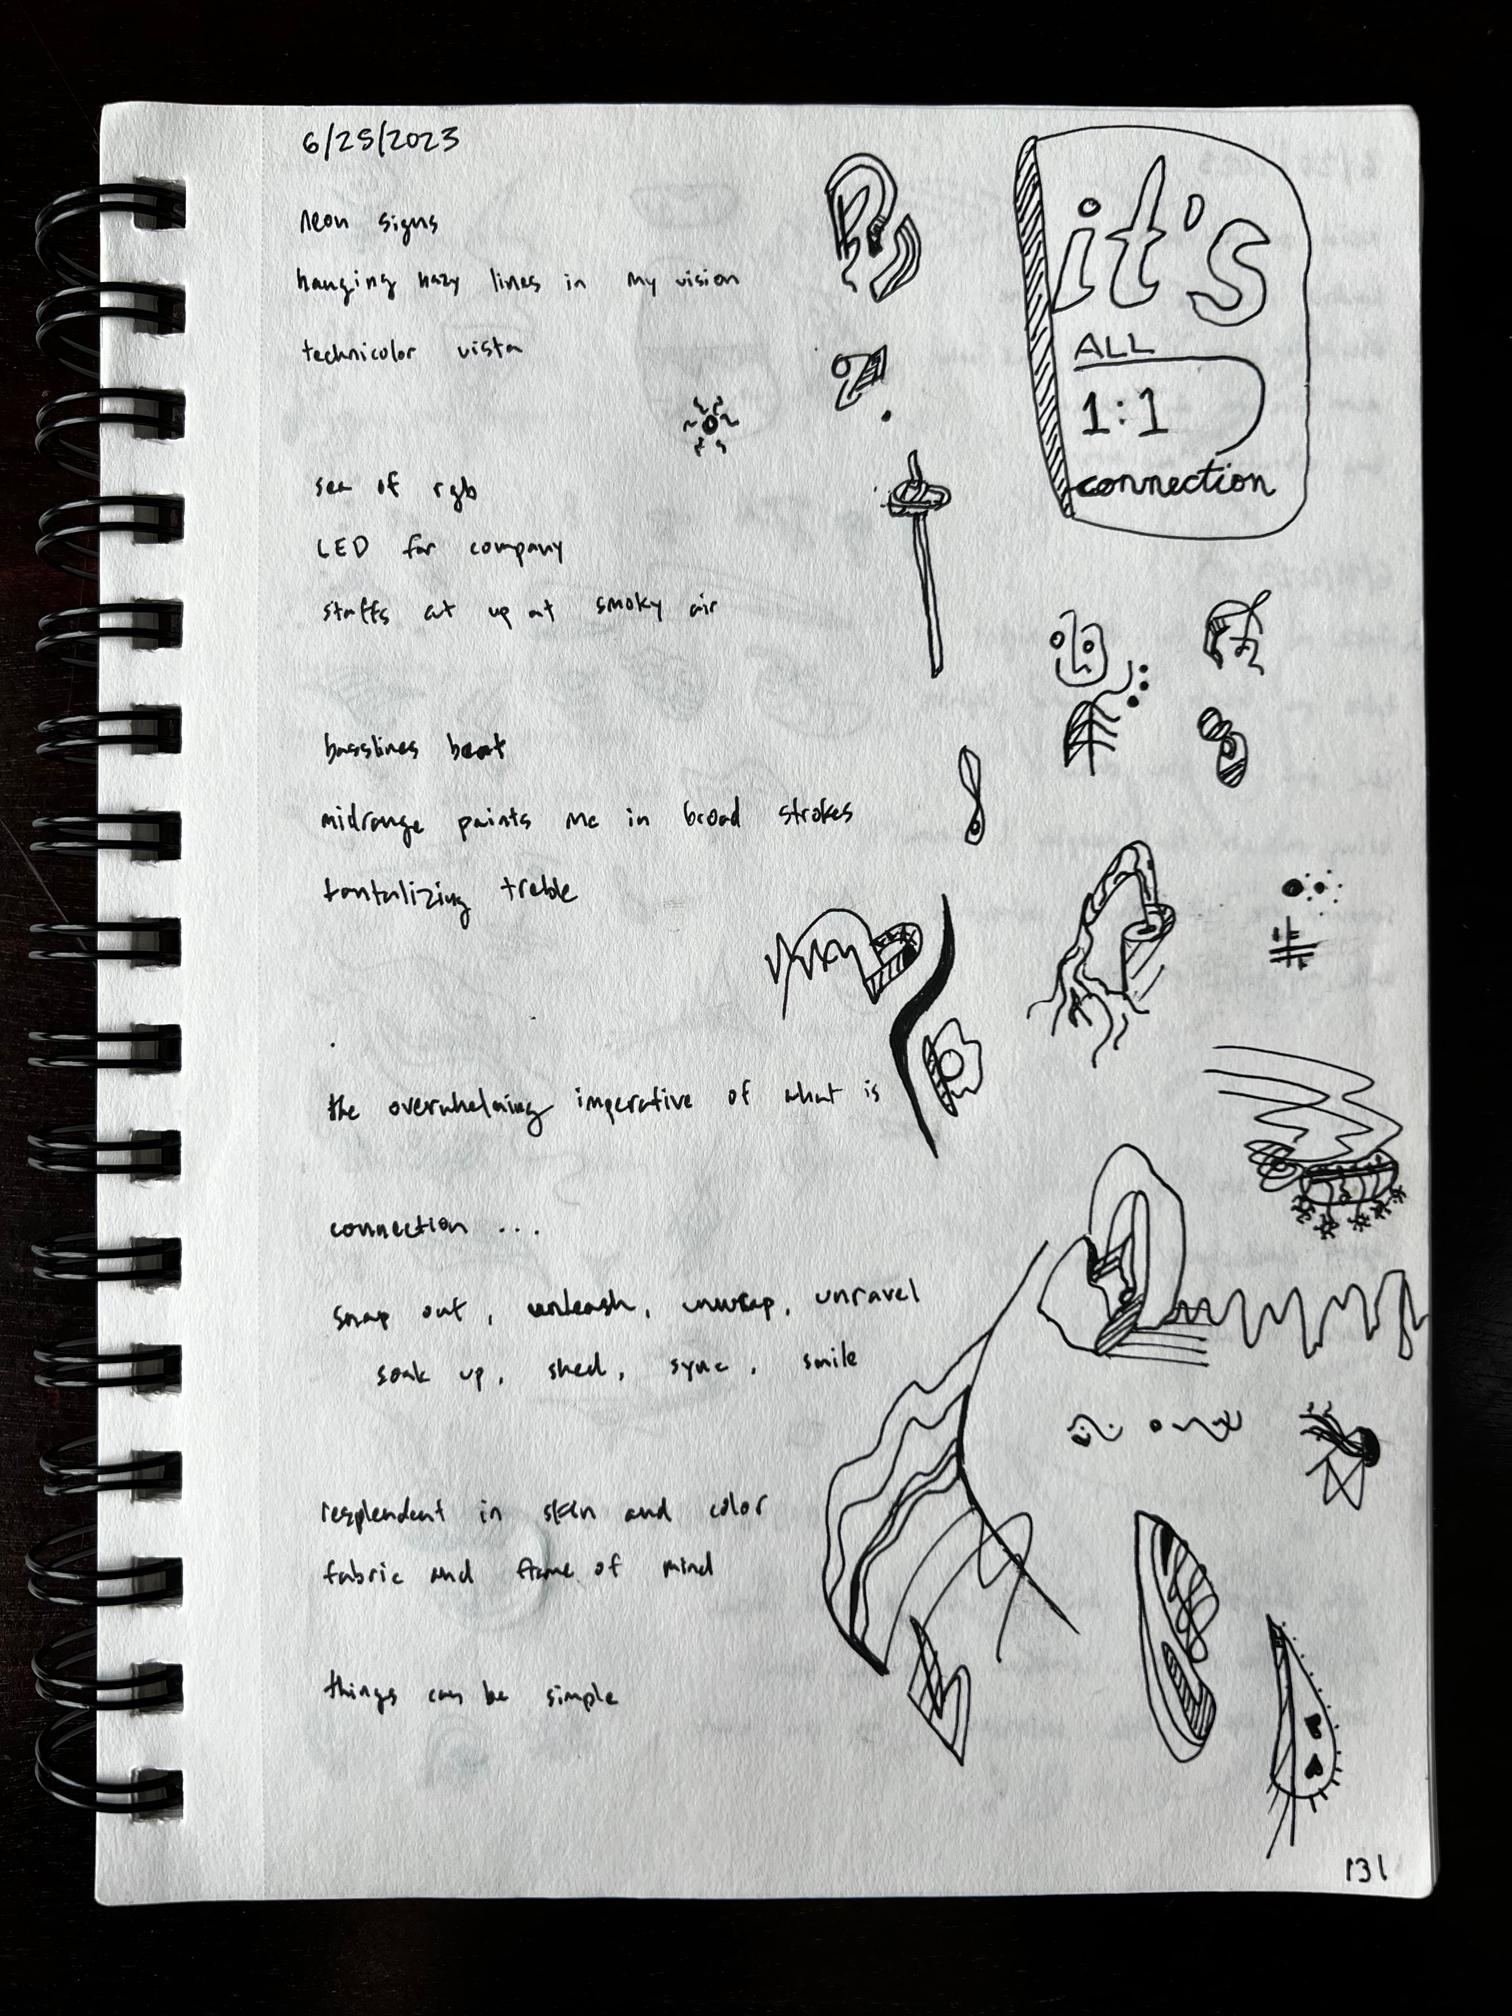 6/25/2023
neon signs
hanging hazy lines in my vision
technicolor vista
sea of rgb
LED for company
staffs at up at smoky air
basslines beat
midrange paints me in broad strokes
tantalizing treble
the overwhelming imperative of what is
connection ...
snap out, unleash, unwrap, unravel
soak up, shed, sync, smile
resplendent in skin and color
fabric and of mind
things can be simple
it's
ALL
1:1
connection
131